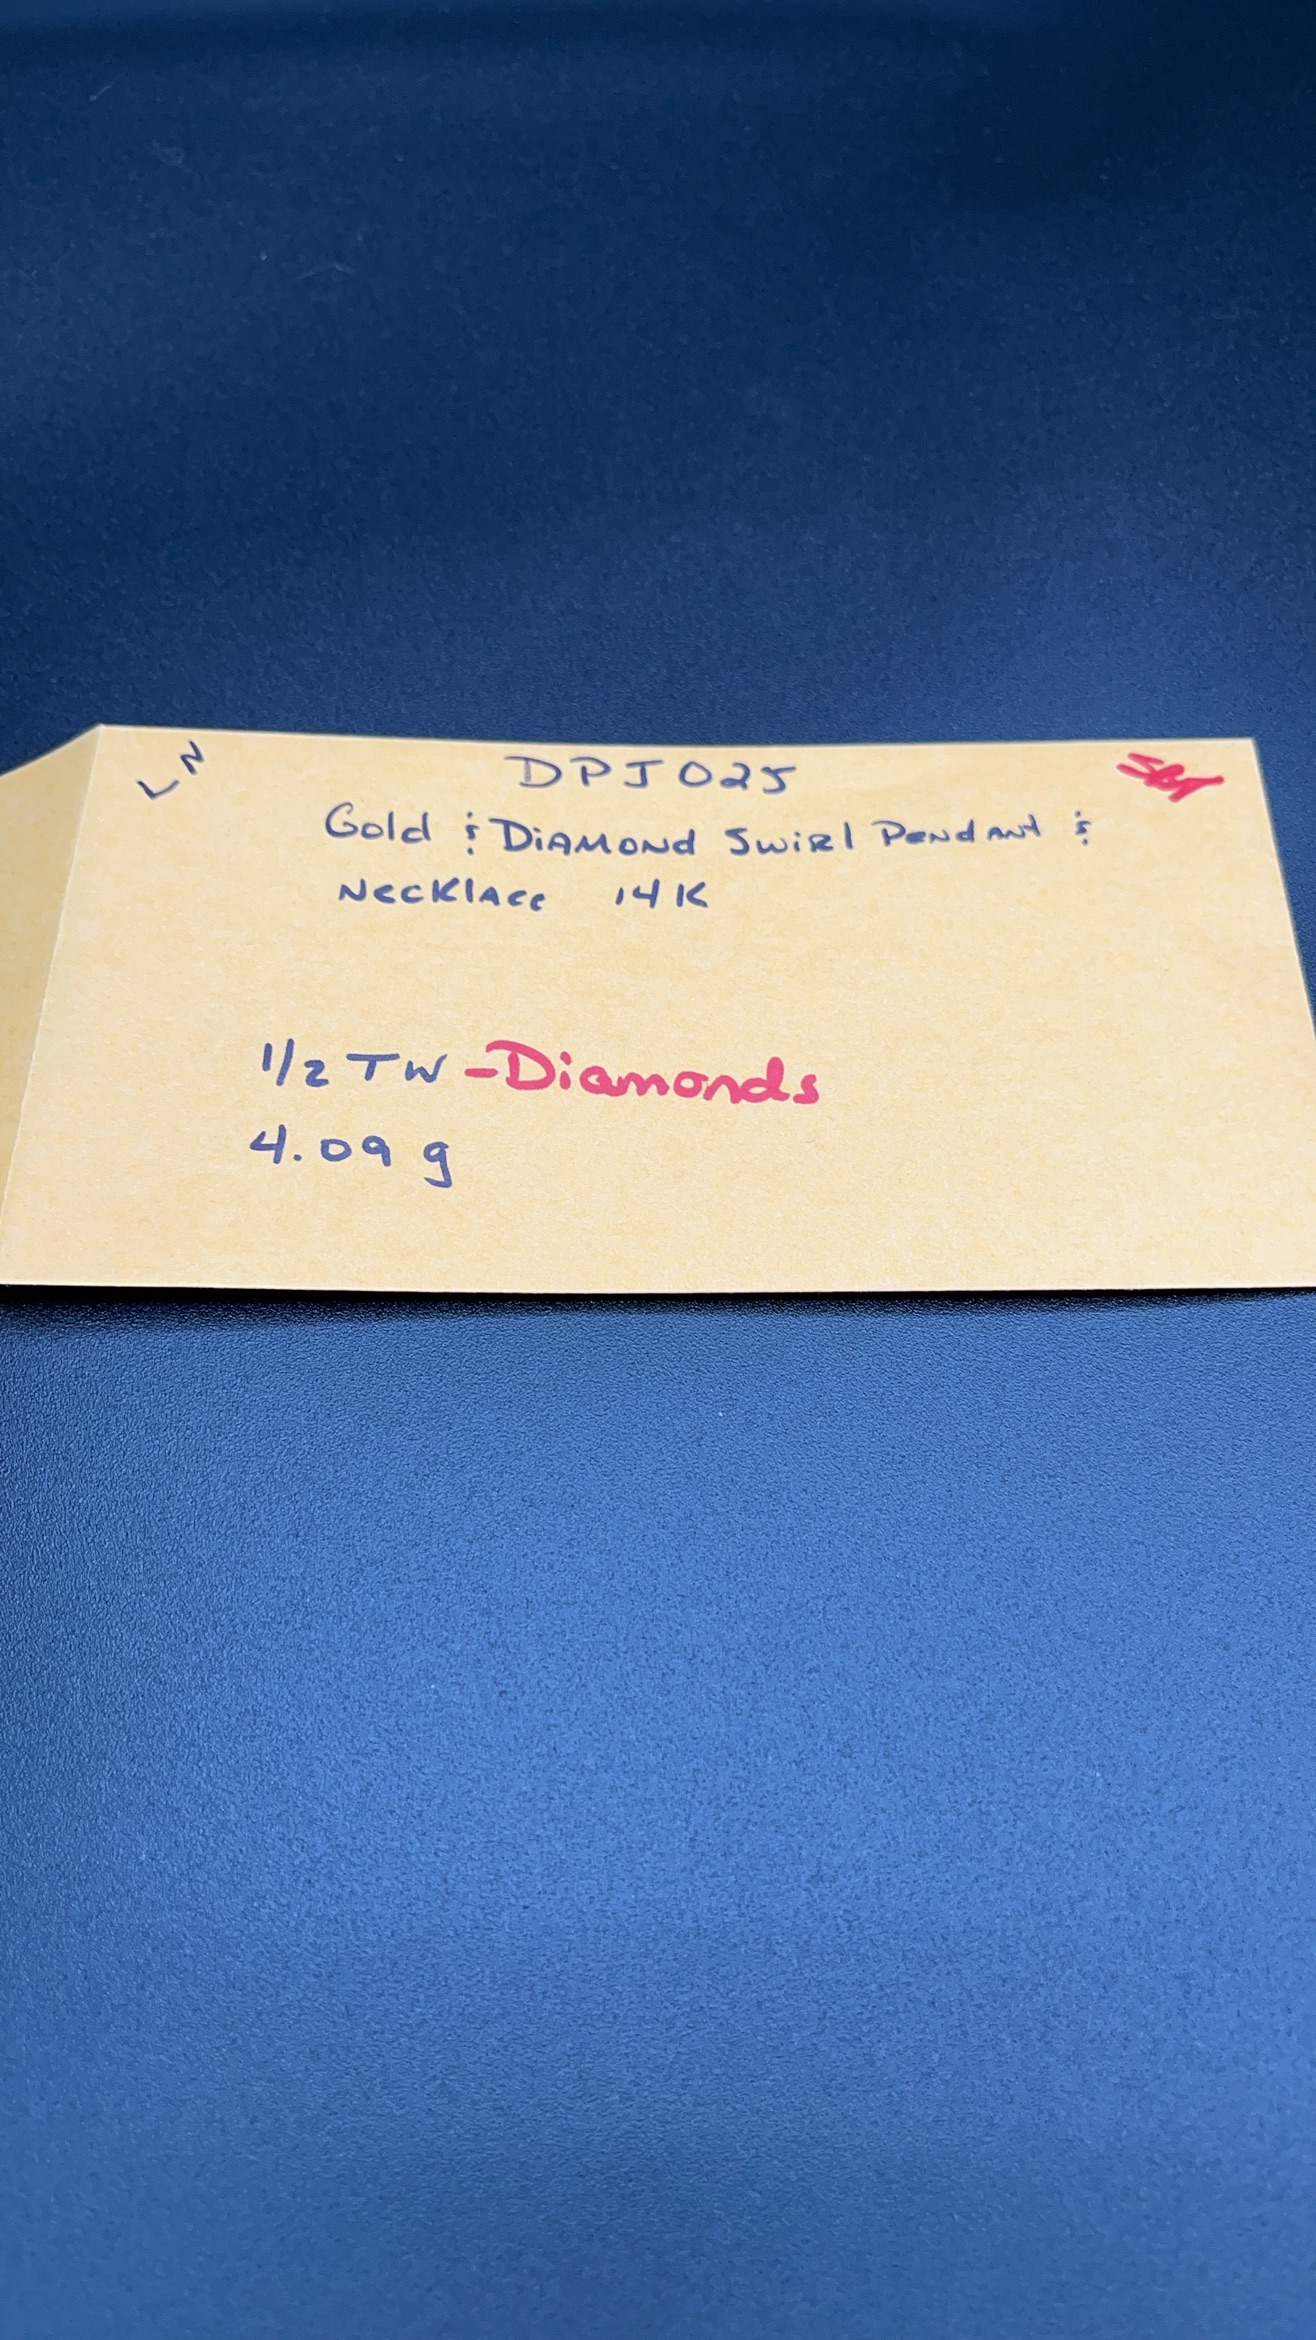 LN
DPJ025
Gold & DIAMOND SWIRL PENDANT &
NECKLACE 14K
1/2 TW -Diamonds
4.09 g